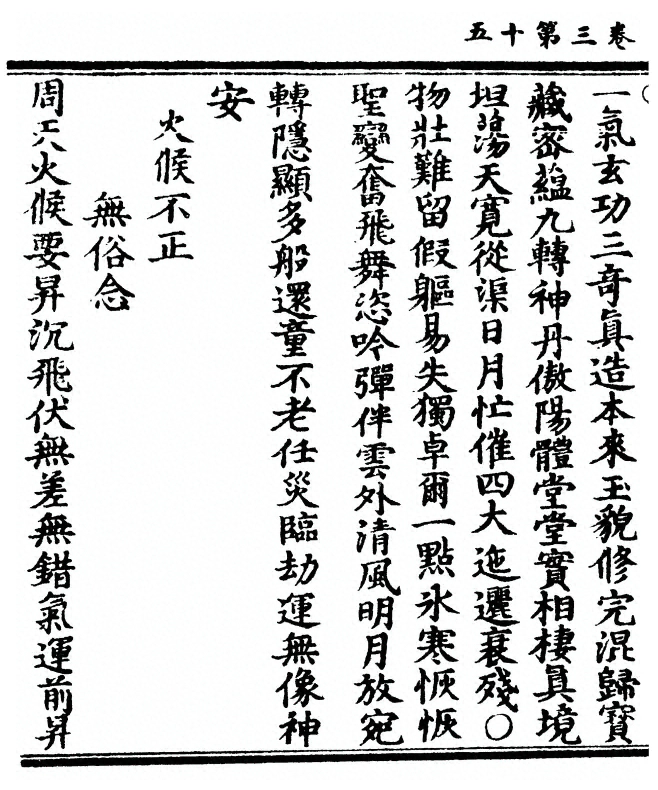 卷三第十五
○
一氣玄功三奇眞造本來玉貌修完混歸寶
藏密蘊九轉神丹傲陽體堂堂實相棲眞境
坦蕩天寬從渠日月忙催四大迤邐衰殘○
物壯難留假軀易失獨卓爾一點氷寒恢恢
聖變奮飛舞恣吟彈伴雲外清風明月放宛
轉隱顯多般還童不老任災臨劫運無像神
安
火候不正
無俗念
周天火候要昇沉飛伏無差無錯氣運前昇